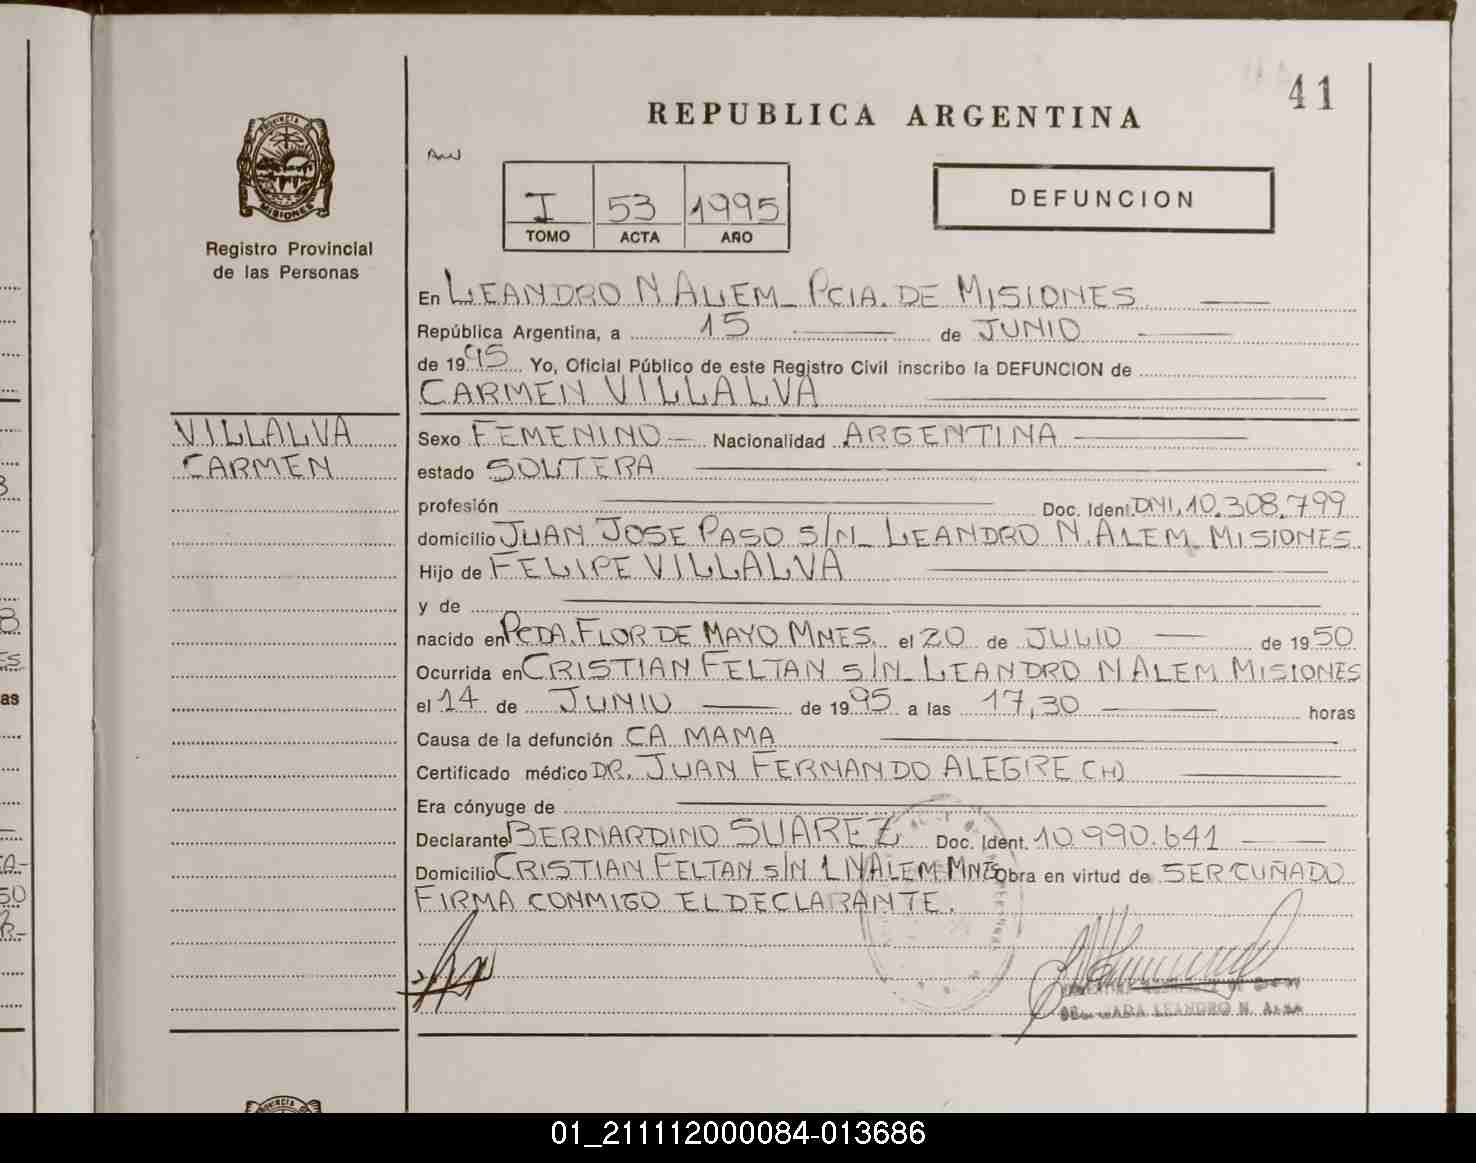 41
REPUBLICA ARGENTINA
PROVINCIA DE
MISIONES
Registro Provincial
de las Personas
I 53 1995
TOMO ACTA AÑO
DEFUNCION
En LEANDRO N ALEM_ PCIA. DE MISIONES
República Argentina, a 15 de JUNIO
de 1995 Yo, Oficial Público de este Registro Civil inscribo la DEFUNCION de
CARMEN VILLALVA
VILLALVA
CARMEN
Sexo FEMENINO Nacionalidad ARGENTINA
estado SOLTERA
profesión Doc. Ident. DNI, 10.308.799
domicilio JUAN JOSE PASO S/N_ LEANDRO N. ALEM_ MISIONES
Hijo de FELIPE VILLALVA
y de
nacido en PCDA. FLOR DE MAYO MNES. el 20 de JULIO de 1950
Ocurrida en CRISTIAN FELTAN S/N_ LEANDRO N ALEM MISIONES
el 14 de JUNIO de 1995 a las 17,30 horas
Causa de la defunción CA MAMA
Certificado médico DR. JUAN FERNANDO ALEGRE (H)
Era cónyuge de
Declarante BERNARDINO SUAREZ Doc. Ident. 10.990.641
Domicilio CRISTIAN FELTAN S/N L N ALEM. MNES Obra en virtud de SER CUÑADO
FIRMA CONMIGO EL DECLARANTE.
LEANDRO N. ALEM
01_211112000084-013686